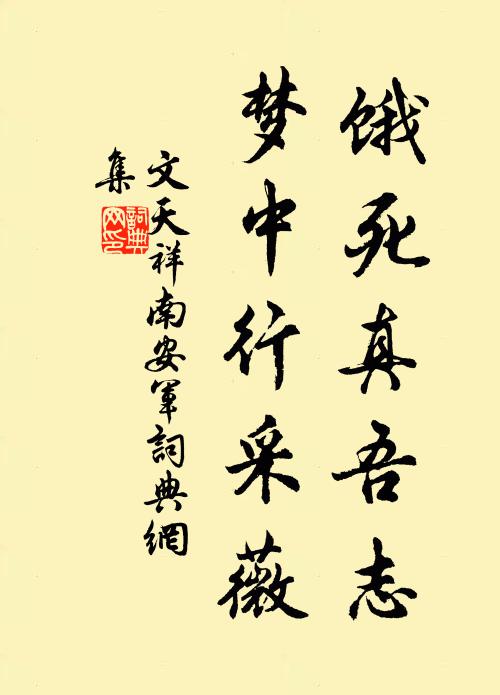 饿死真吾志
梦中行采薇
文天祥南安军詞典網
集
詞典
网印